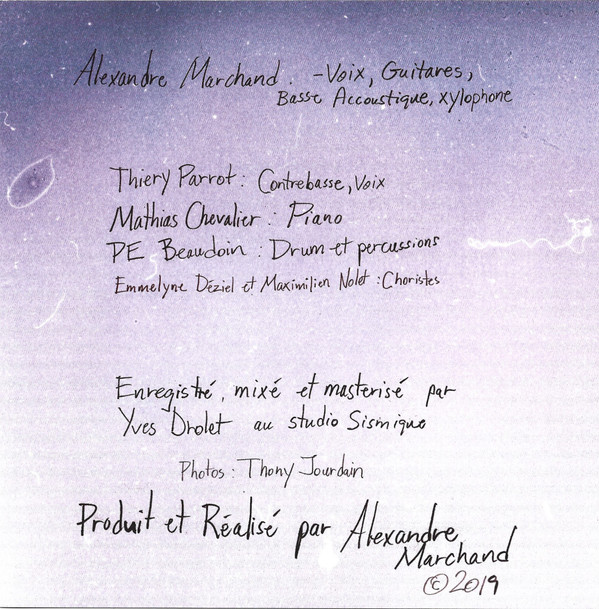 Alexandre Marchand. - Voix, Guitares,
Basse Accoustique, xylophone
Thiery Parrot : Contrebasse, Voix
Mathias Chevalier : Piano
PE Beaudoin : Drum et percussions
Emmelyne Déziel et Maximilien Nolet : Choristes
Enregistré, mixé et masterisé par
Yves Drolet au studio Sismique
Photos : Thony Jourdain
Produit et Réalisé par Alexandre
Marchand
© 2019